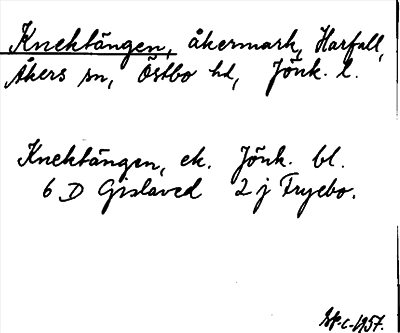 Knektängen, åkermark, Harfall,
Åkers sn, Östbo hd, Jönk. l.
Knektängen, ek. Jönk. bl.
6 D Gislaved 2 j Fryebo.
EP.c.1957.